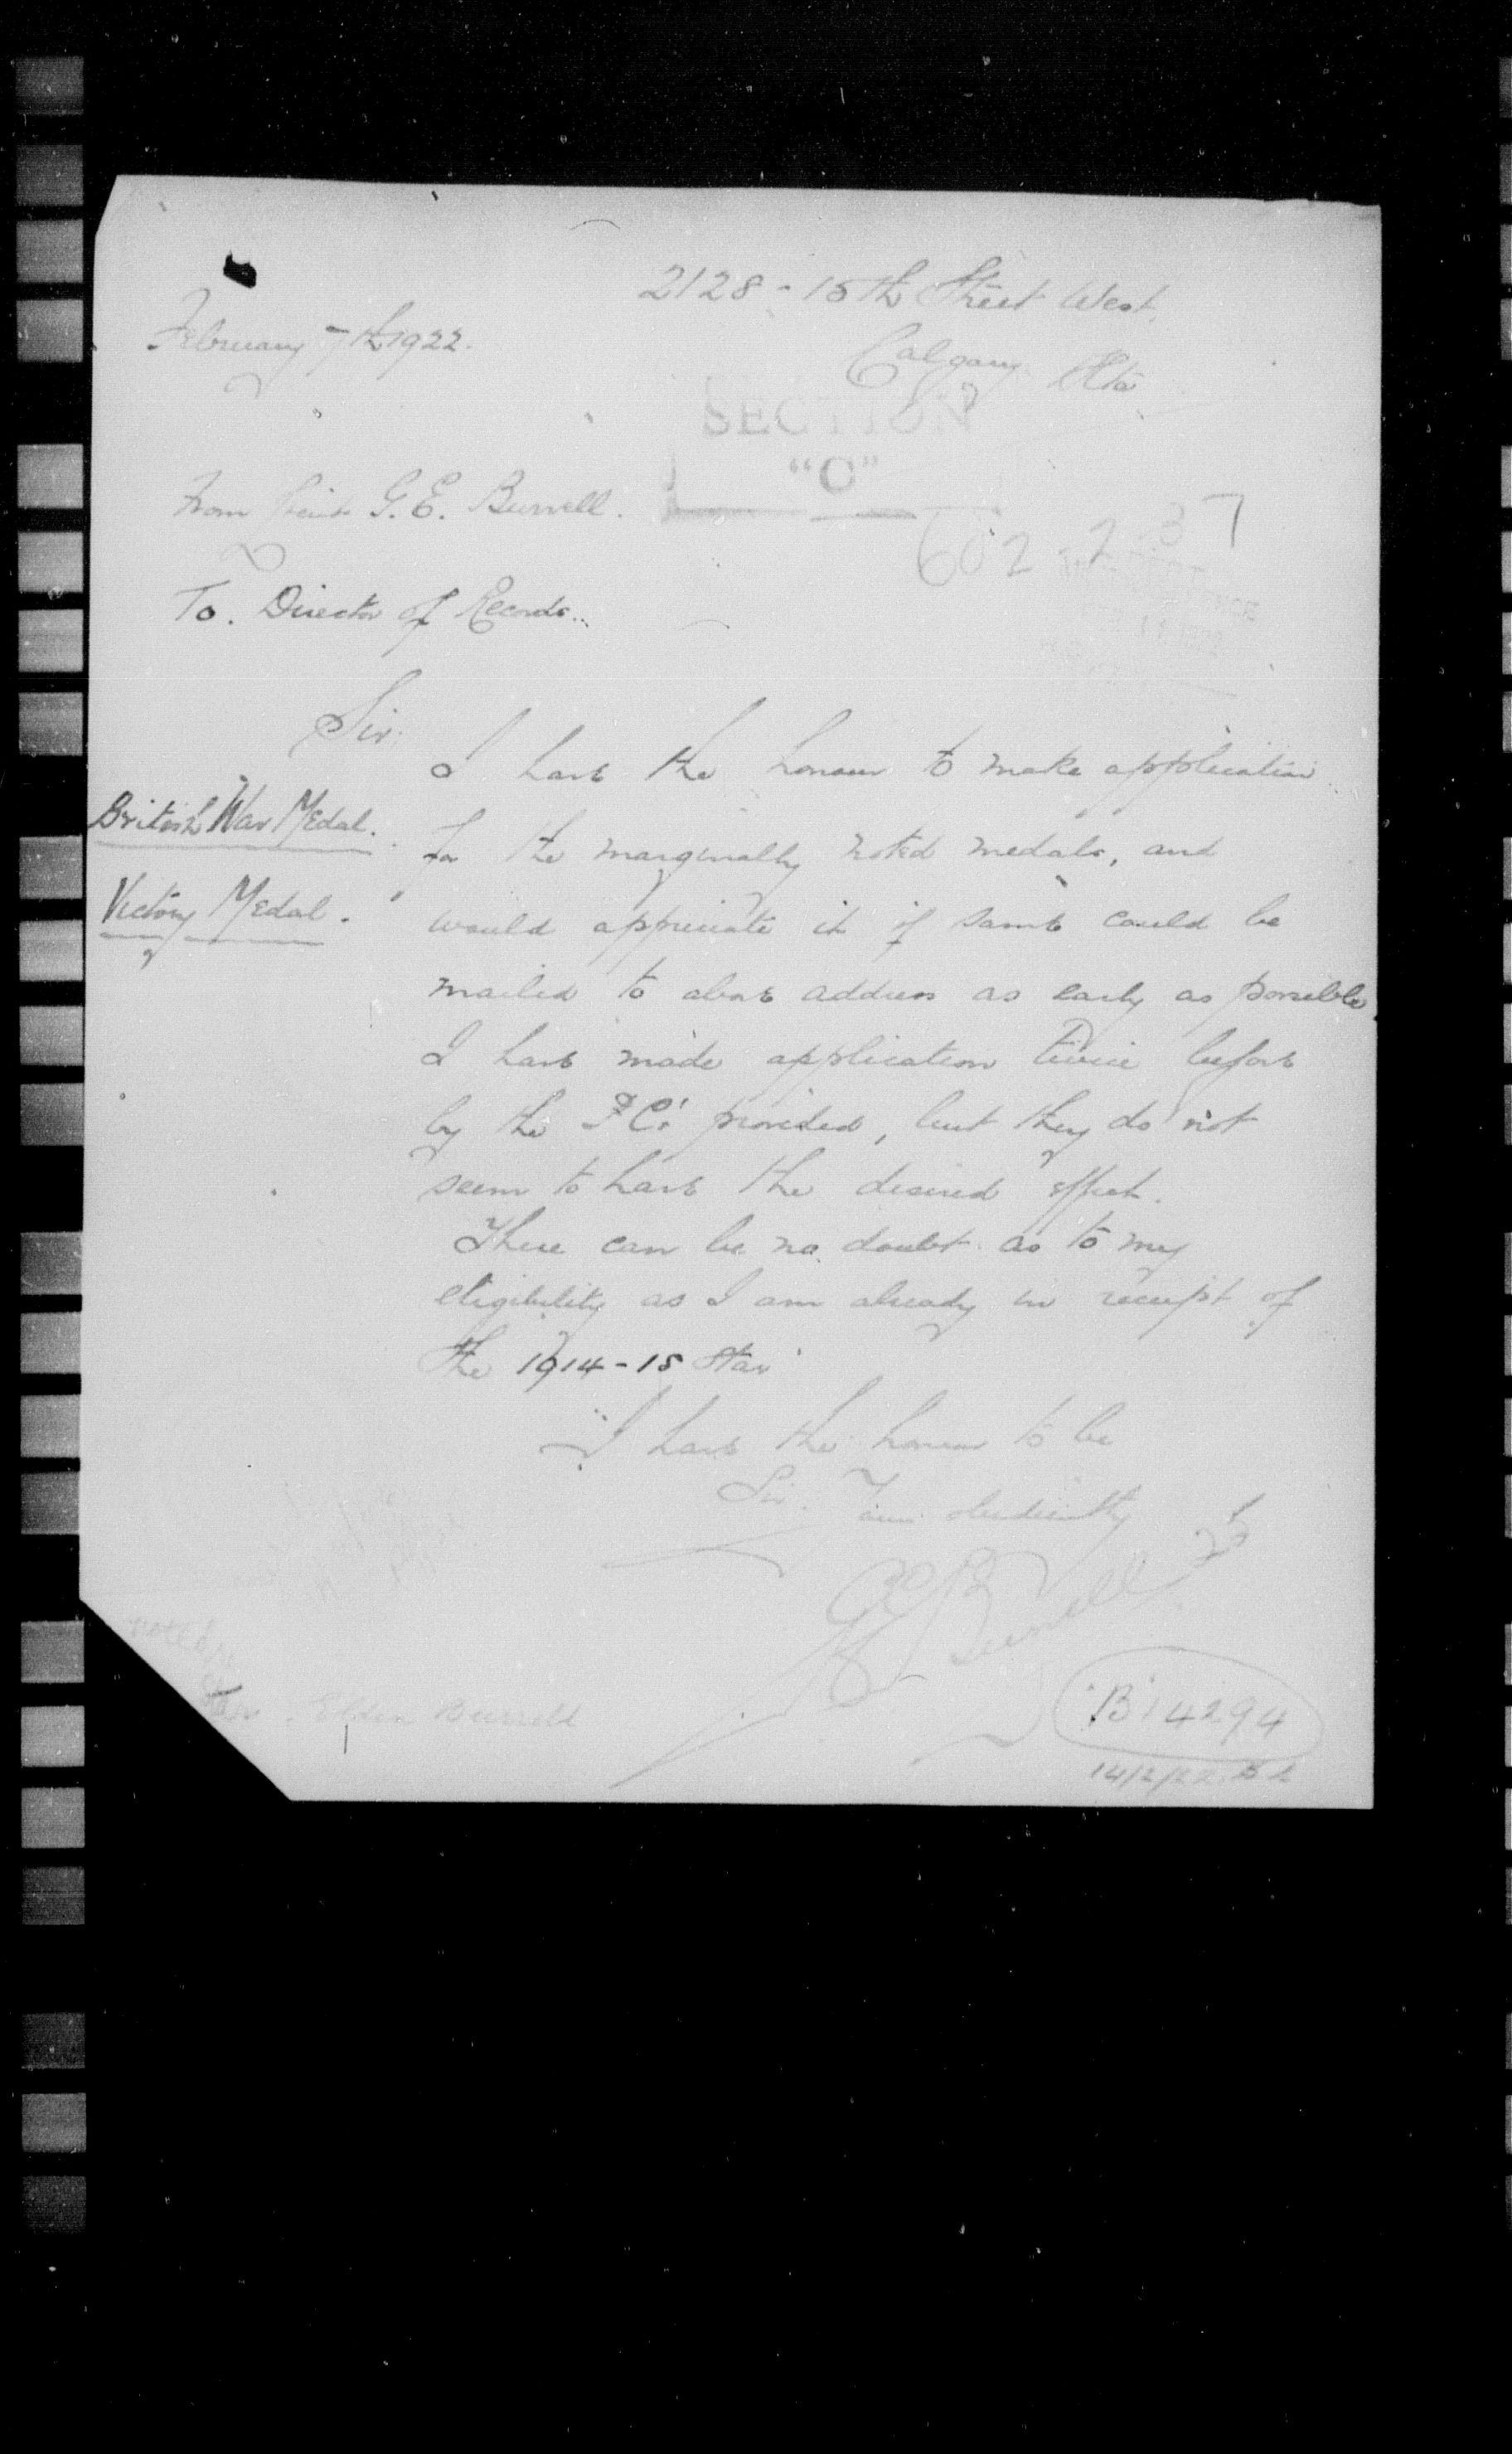 2128 - 15th Street West,
February 7th 1922.
Calgary Alta
SECTION
"C"
From Lieut G. E. Burrell.
602-2-37
To. Director of Records..
Sir.
I have the honour to make application
British War Medal.
for the marginally noted medals, and
Victory Medal.
would appreciate it if same could be
mailed to above address as early as possible.
I have made application twice before
by the P.C's provided, but they do not
seem to have the desired effect.
There can be no doubt as to my
eligibility as I am already in receipt of
the 1914-15 Star
I have the honour to be
Sir. Yours obediently
Burrell
Elden Burrell
B14294
14/2/22